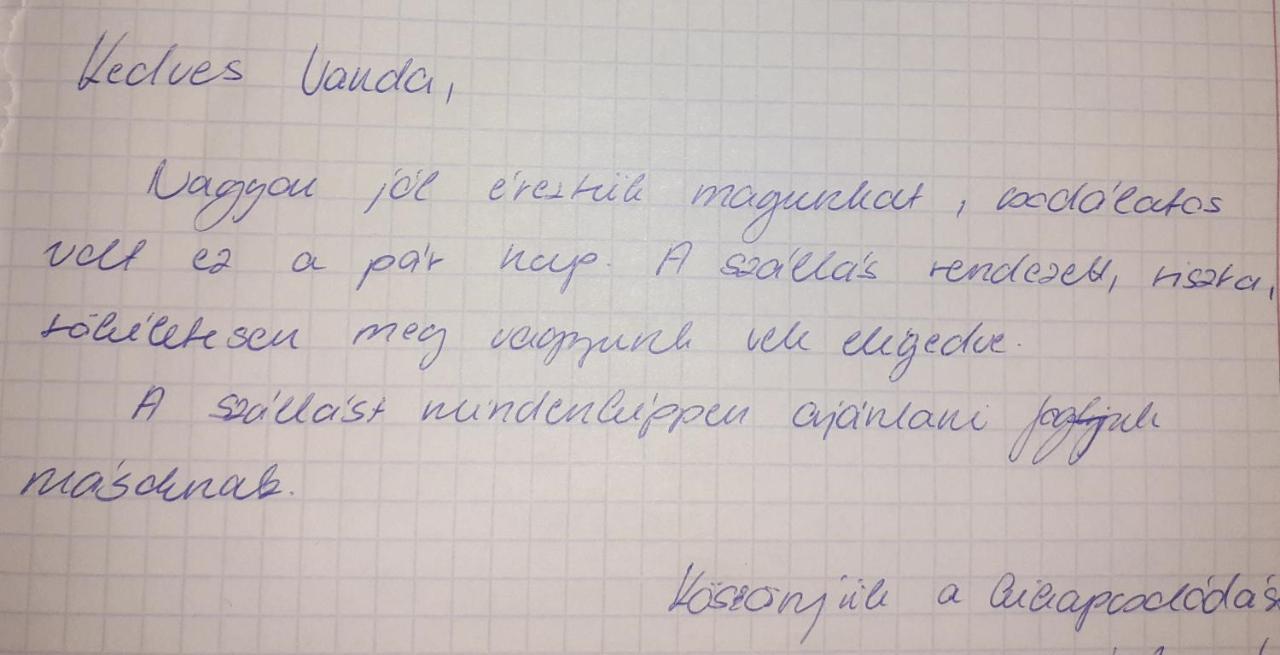 Kedves Vanda,
Nagyon jól éreztük magunkat, csodálatos
volt ez a pár nap. A szállás rendezett, tiszta,
tökéletesen meg vagyunk vele elégedve.
A szállást mindenképpen ajánlani fogjuk
másoknak.
Köszönjük a kikapcsolódás